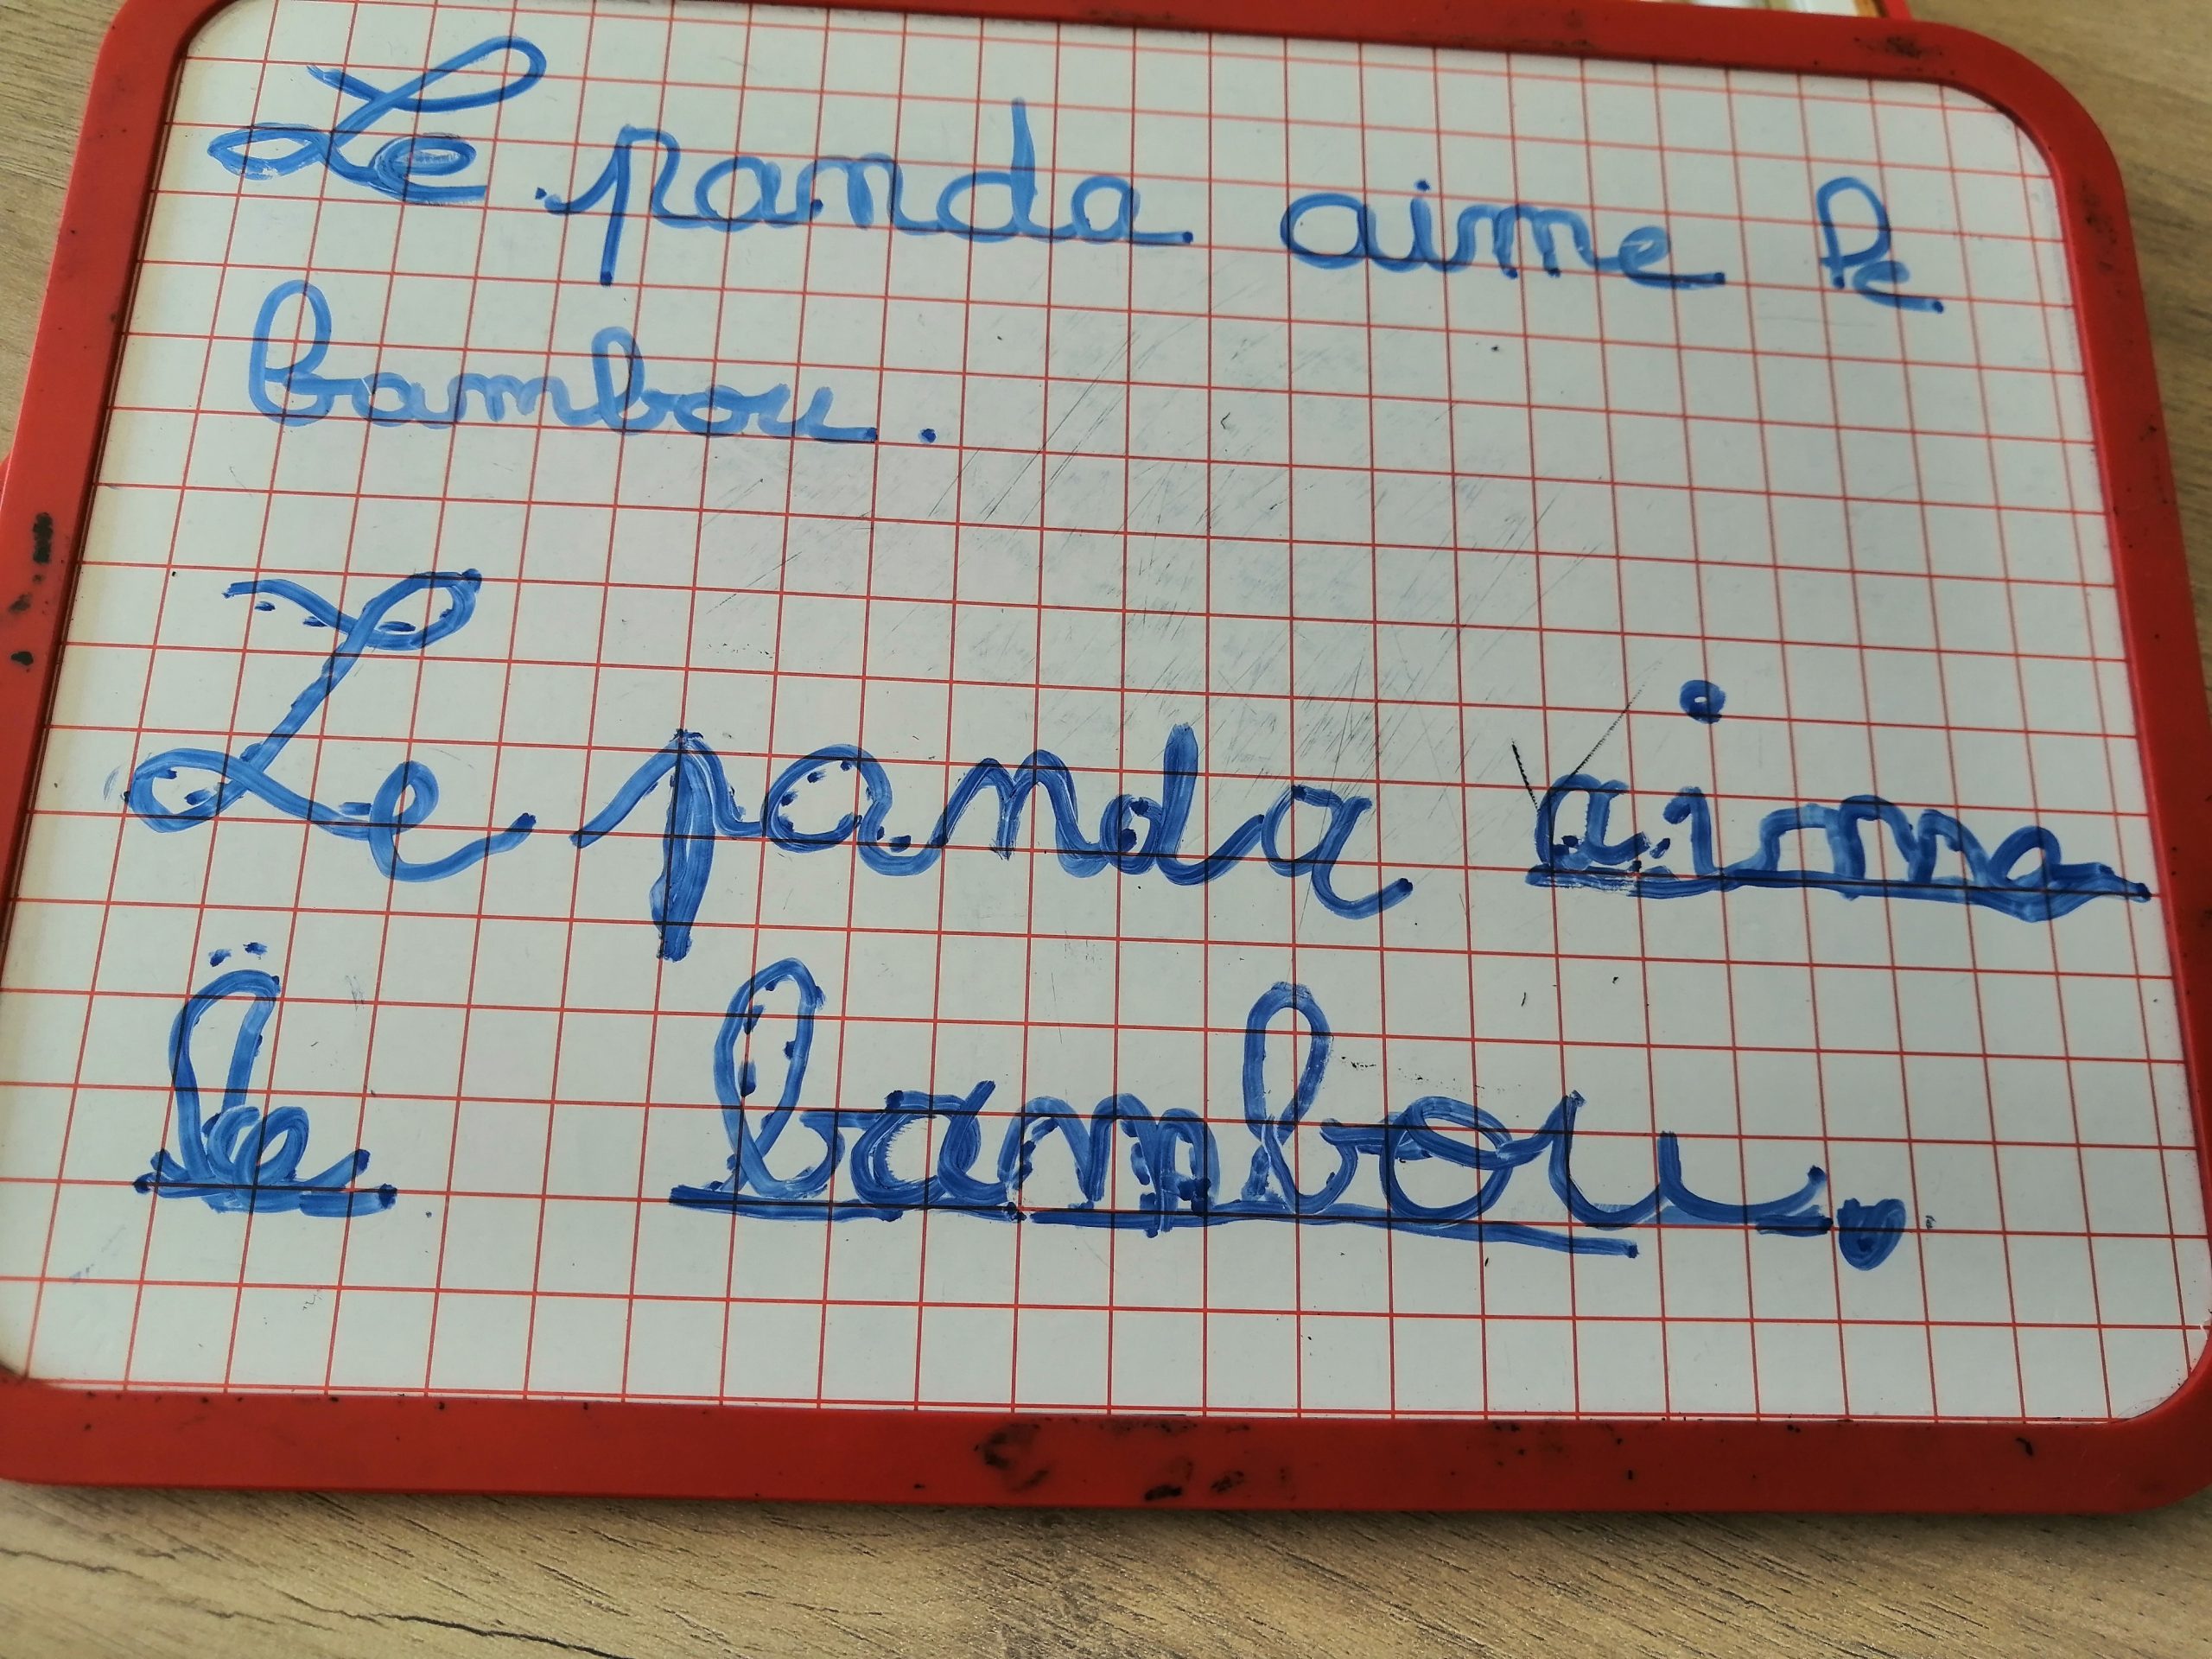 Le panda aime le
bambou.
Le panda aime
le bambou.